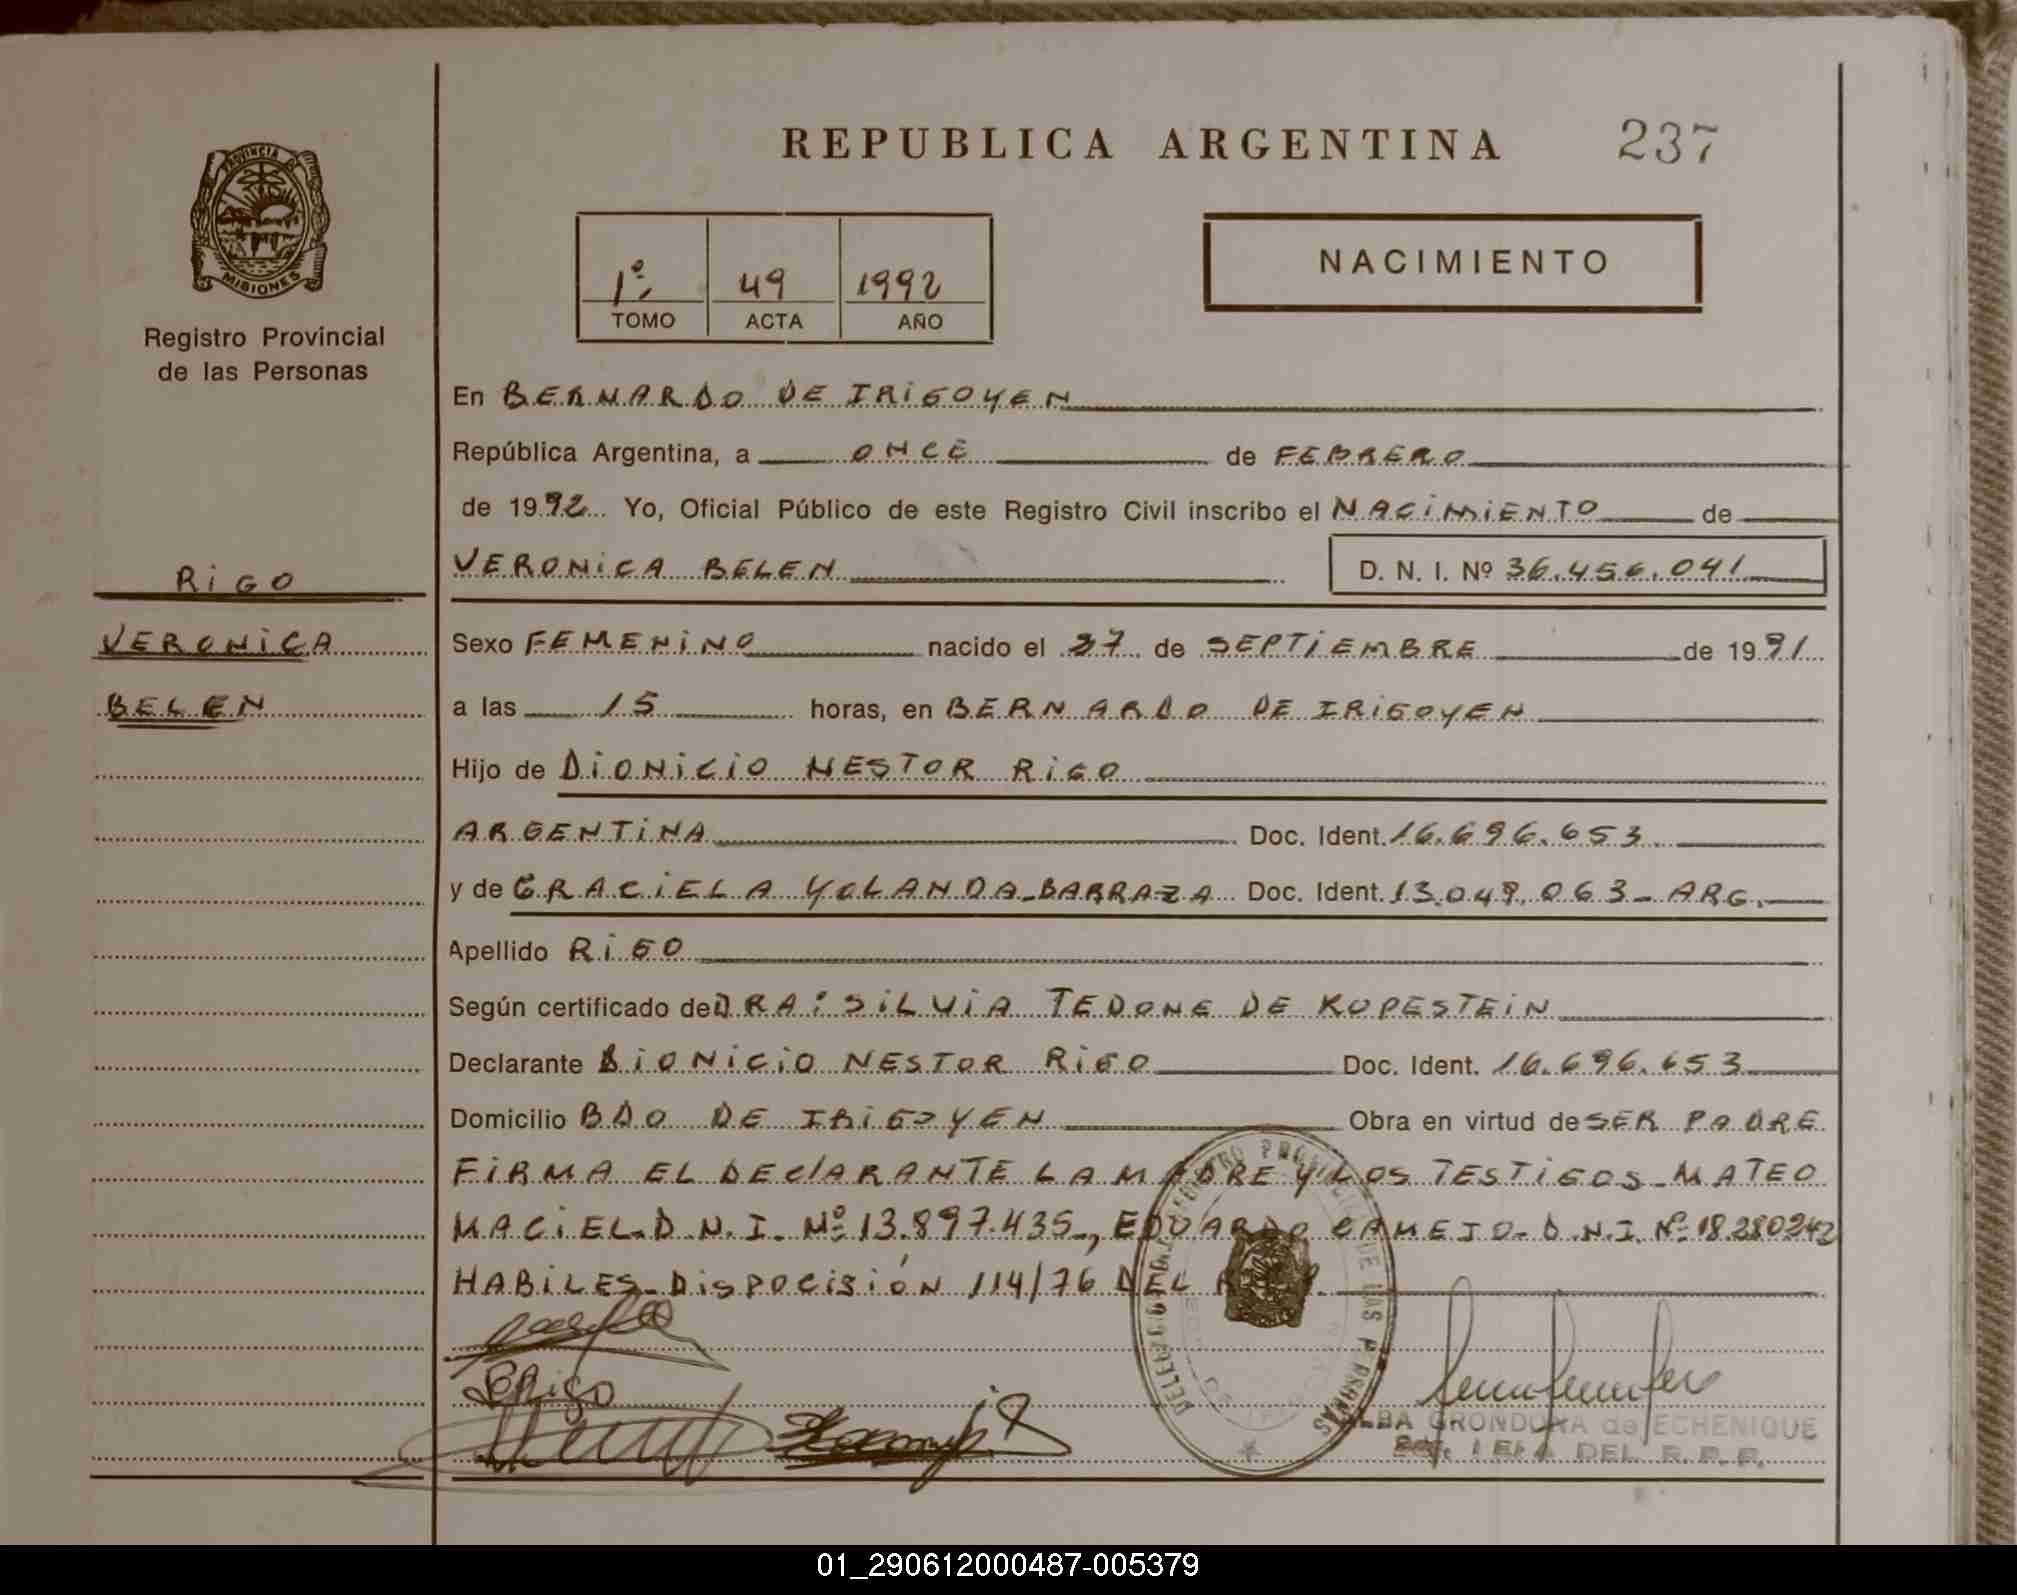 REPUBLICA ARGENTINA 237
PROVINCIA DE
MISIONES
Registro Provincial
de las Personas
1º 49 1992
TOMO ACTA AÑO
NACIMIENTO
En BERNARDO DE IRIGOYEN
República Argentina, a ONCE de FEBRERO
de 1992 Yo, Oficial Público de este Registro Civil inscribo el NACIMIENTO de
VERONICA BELEN D. N. I. Nº 36.456.041
RIGO
VERONICA
BELEN
Sexo FEMENINO nacido el 27 de SEPTIEMBRE de 1991
a las 15 horas, en BERNARDO DE IRIGOYEN
Hijo de DIONICIO NESTOR RIGO
ARGENTINA Doc. Ident. 16.696.653
y de GRACIELA YOLANDA-BARRAZA Doc. Ident. 13.049.063- ARG.
Apellido RIGO
Según certificado de DRA: SILVIA TEDONE DE KOPESTEIN
Declarante DIONICIO NESTOR RIGO Doc. Ident. 16.696.653
Domicilio BDO DE IRIGOYEN Obra en virtud de SER PADRE
FIRMA EL DEClARANTE LA MADRE Y LOS TESTIGOS- MATEO
MACIEL-D.N.I. Nº 13.897.435-, EDUARDO CAMEJO- D.N.I. Nº 18.280242
HABILES- DISPOCISIÓN 114/76 DEL
DE LAS PERSONAS
ALBA GRONDONA de ECHENIQUE
DEL R.P.P.
01_290612000487-005379